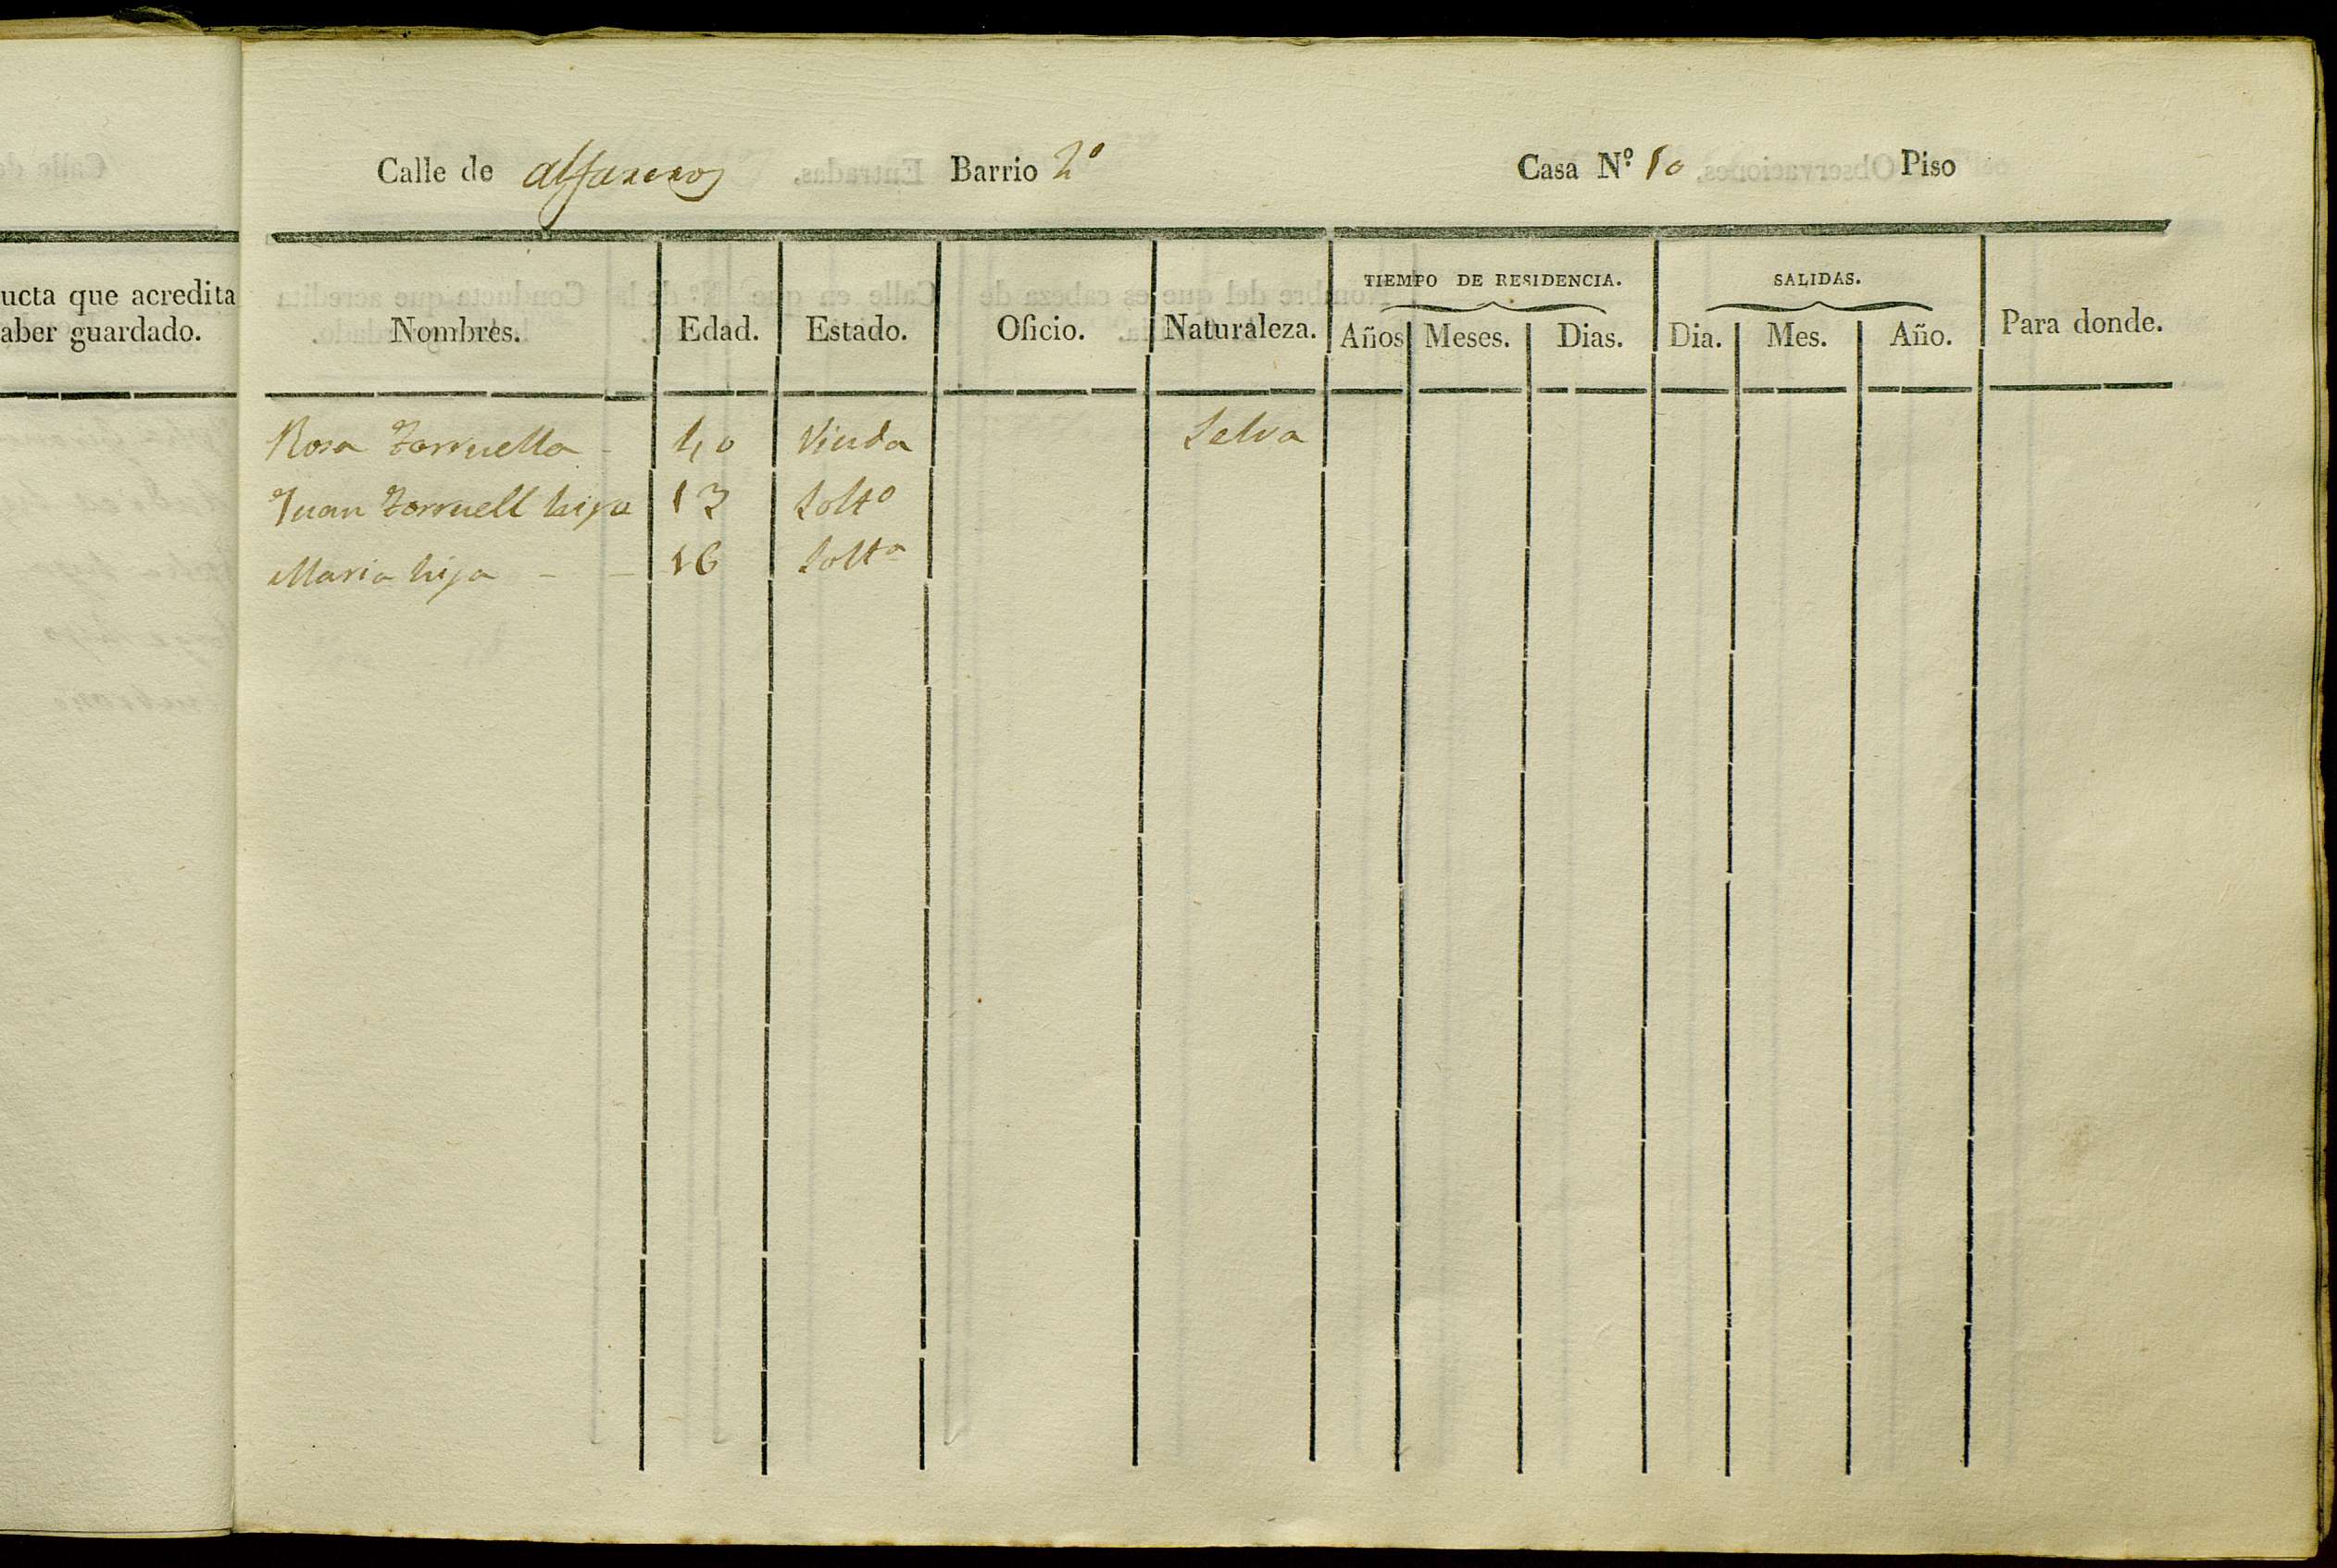 Calle de alfareros Barrio 2º Casa Nº 10 Piso
ucta que acredita
aber guardado.
TIEMPO DE RESIDENCIA. SALIDAS.
Nombres. Edad. Estado. Oficio. Naturaleza. Años Meses. Dias. Dia. Mes. Año. Para donde.
Rosa Torruella - 40 Viuda Selva
Juan Torruell hijo 13 Soltº
Maria hija - - 16 Soltª